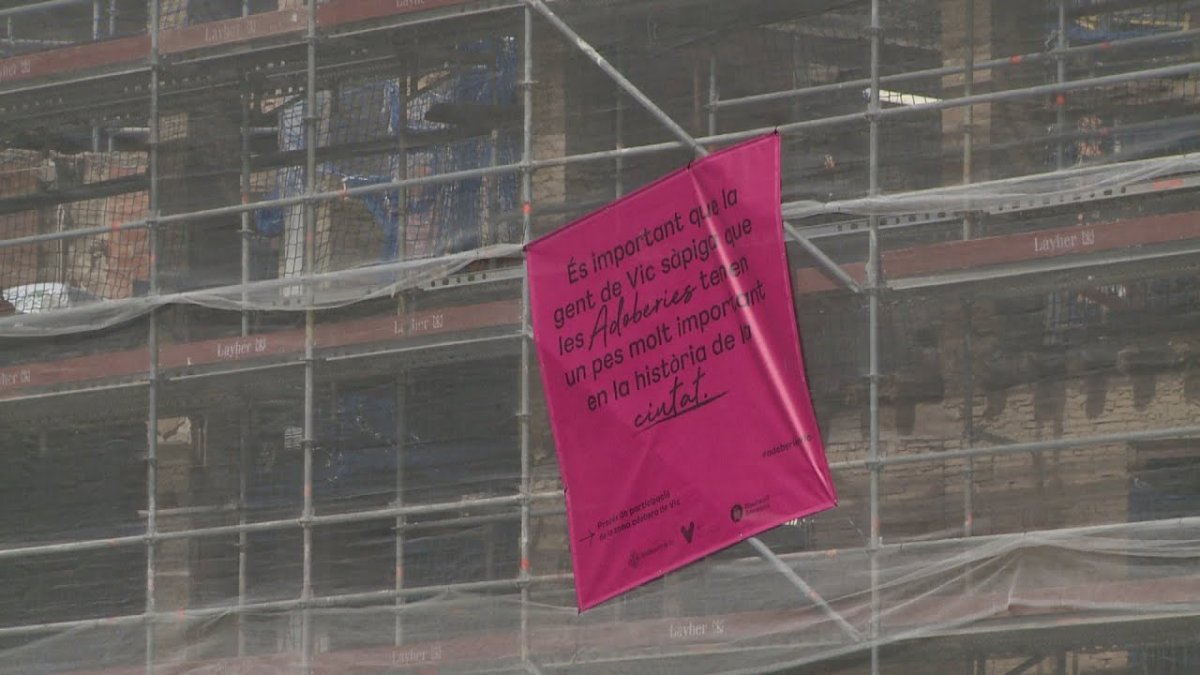 Layher
Layher
És important que la
gent de Vic sàpiga que
les Adoberies tenen
un pes molt important
en la història de la
ciutat.
Layher
Layher
Layher
Layher
Procés de participació
de la zona adobera de Vic
Layher
Layher